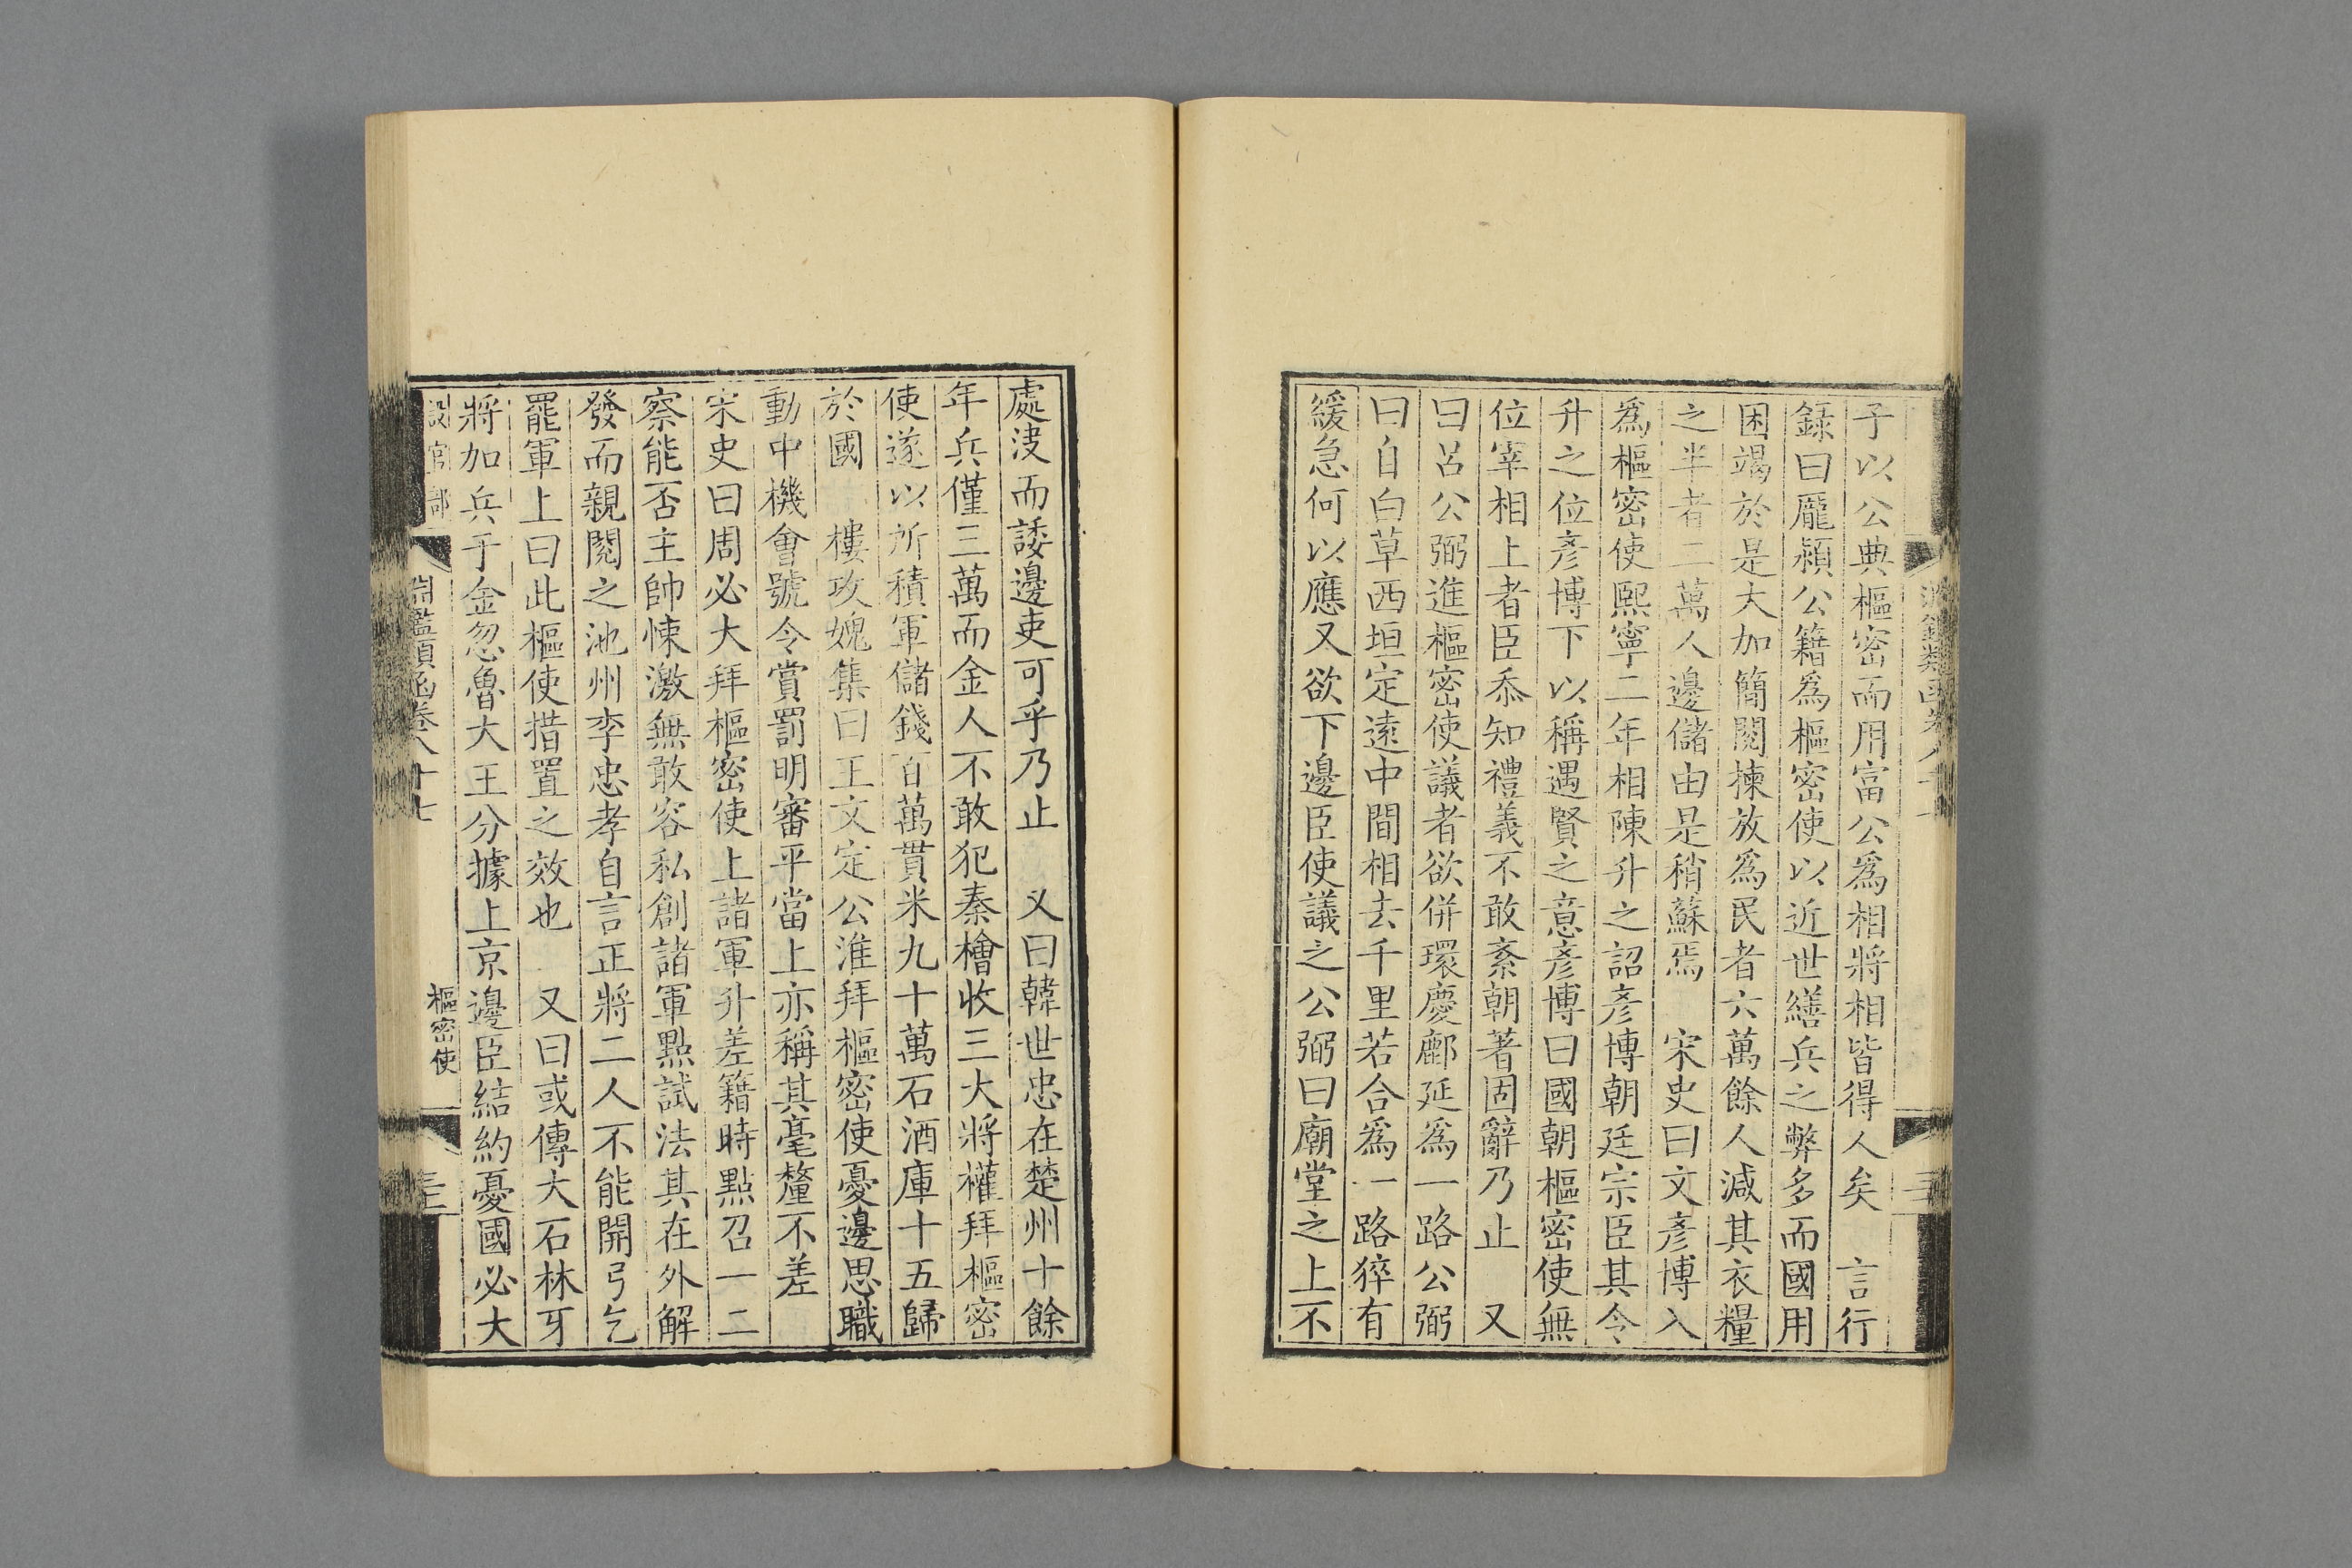 子以公典樞密而用富公爲相將相皆得人矣　言行
錄曰龎潁公籍爲樞密使以近世繕兵之弊多而國用
困竭於是大加簡閱揀放爲民者六萬餘人減其衣糧
之半者二萬人邊儲由是稍蘇焉　宋史曰文彥博入
爲樞密使熙寧二年相陳升之詔彥博朝廷宗臣其令
升之位彥博下以稱遇賢之意彥博曰國朝樞密使無
位宰相上者臣忝知禮義不敢紊朝著固辭乃止　又
曰呂公弼進樞密使議者欲併環慶鄜延爲一路公弼
曰自白草西垣定遠中間相去千里若合爲一路猝有
緩急何以應又欲下邊臣使議之公弼曰廟堂之上不
處決而諉邊吏可乎乃止　又曰韓世忠在楚州十餘
年兵僅三萬而金人不敢犯秦檜收三大將權拜樞密
使遂以所積軍儲錢百萬貫米九十萬石酒庫十五歸
於國　樓攻媿集曰王文定公淮拜樞密使憂邊思職
動中機會號令賞罰明審平當上亦稱其毫釐不差
宋史曰周必大拜樞密使上諸軍升差籍時點召一二
察能否主帥悚激無敢容私創諸軍點試法其在外解
發而親閱之池州李忠孝自言正將二人不能開弓乞
罷軍上曰此樞使措置之效也　又曰或傳大石林牙
將加兵于金忽魯大王分據上京邊臣結約憂國必大
設官部
淵鑑類函卷八十七
樞密使